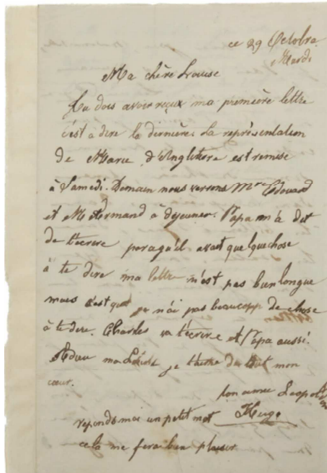 ce 29 Octobre
Mardi
Ma chère Louise
Tu dois avoir reçue ma première lettre
c'est a dire la dernière La représentation
de Marie d'Angleterre est remise
à Samedi. Demain nous verrons Mme Edouard
et à déjeuner. Papa m'a dit
de t'ecrire avait quelquechose
à te dire ma lettre n'est pas bien longue
mais c'est que je n'ai pas beaucoup de chose
à te dire. Charles va t'ecrire et Papa aussi.
Adieu ma Louise je t'aime de tout mon
cœur.
ton amie Leopoldine
Hugo
reponds moi un petit mot
cela me fera bien plaisir